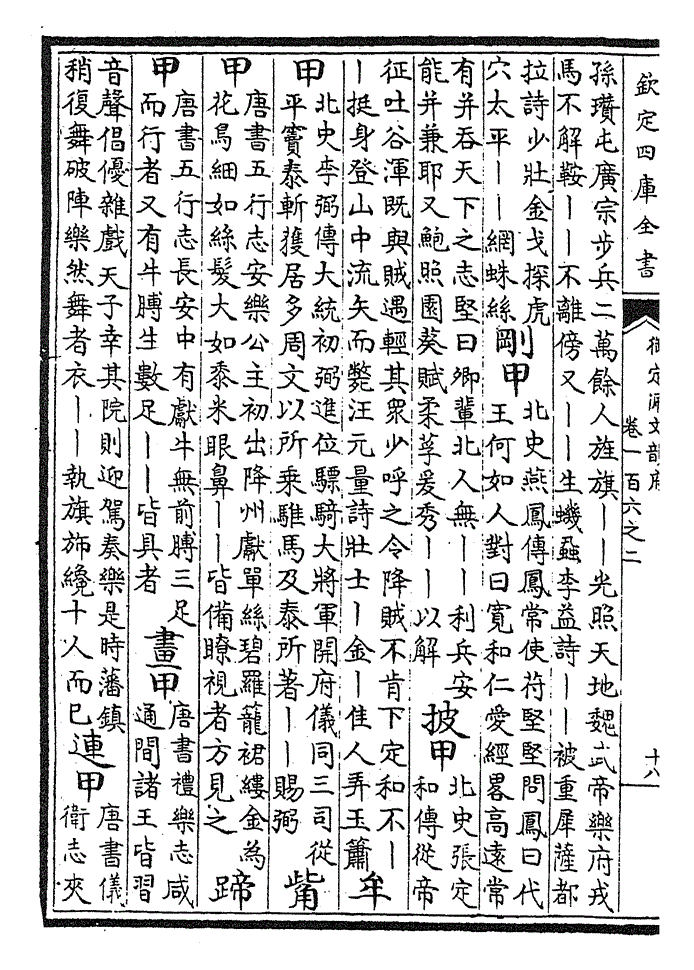 欽定四庫全書
御定佩文韻府
卷一百六之二
十八
孫瓚屯廣宗步兵二萬餘人旌旗丨丨光照天地魏武帝樂府戎
馬不解鞍丨丨不離傍又丨丨生蟣蝨李益詩丨丨被重犀薩都
拉詩少壯金戈探虎
穴太平丨丨網蛛絲
剛甲
北史燕鳳傳鳳常使苻堅堅問鳳曰代
王何如人對曰寬和仁愛經畧高遠常
有并吞天下之志堅曰卿輩北人無丨丨利兵安
能并兼耶又鮑照園葵賦柔莩爰秀丨丨以解
披甲
北史張定
和傳從帝
征吐谷渾既與賊遇輕其衆少呼之令降賊不肯下定和不丨
丨挺身登山中流矢而斃汪元量詩壯士丨金丨佳人弄玉簫
牟
甲
北史李弼傳大統初弼進位驃騎大將軍開府儀同三司從
平竇泰斬獲居多周文以所乘騅馬及泰所著丨丨賜弼
觜
甲
唐書五行志安樂公主初出降州獻單絲碧羅籠裙縷金為
花鳥細如絲髮大如黍米眼鼻丨丨皆備瞭視者方見之
蹄
甲
唐書五行志長安中有獻牛無前膊三足
而行者又有牛膊生數足丨丨皆具者
畫甲
唐書禮樂志咸
通間諸王皆習
音聲倡優雜戲天子幸其院則迎駕奏樂是時藩鎮
稍復舞破陣樂然舞者衣丨丨執旗旆纔十人而已
連甲
唐書儀
衛志夾